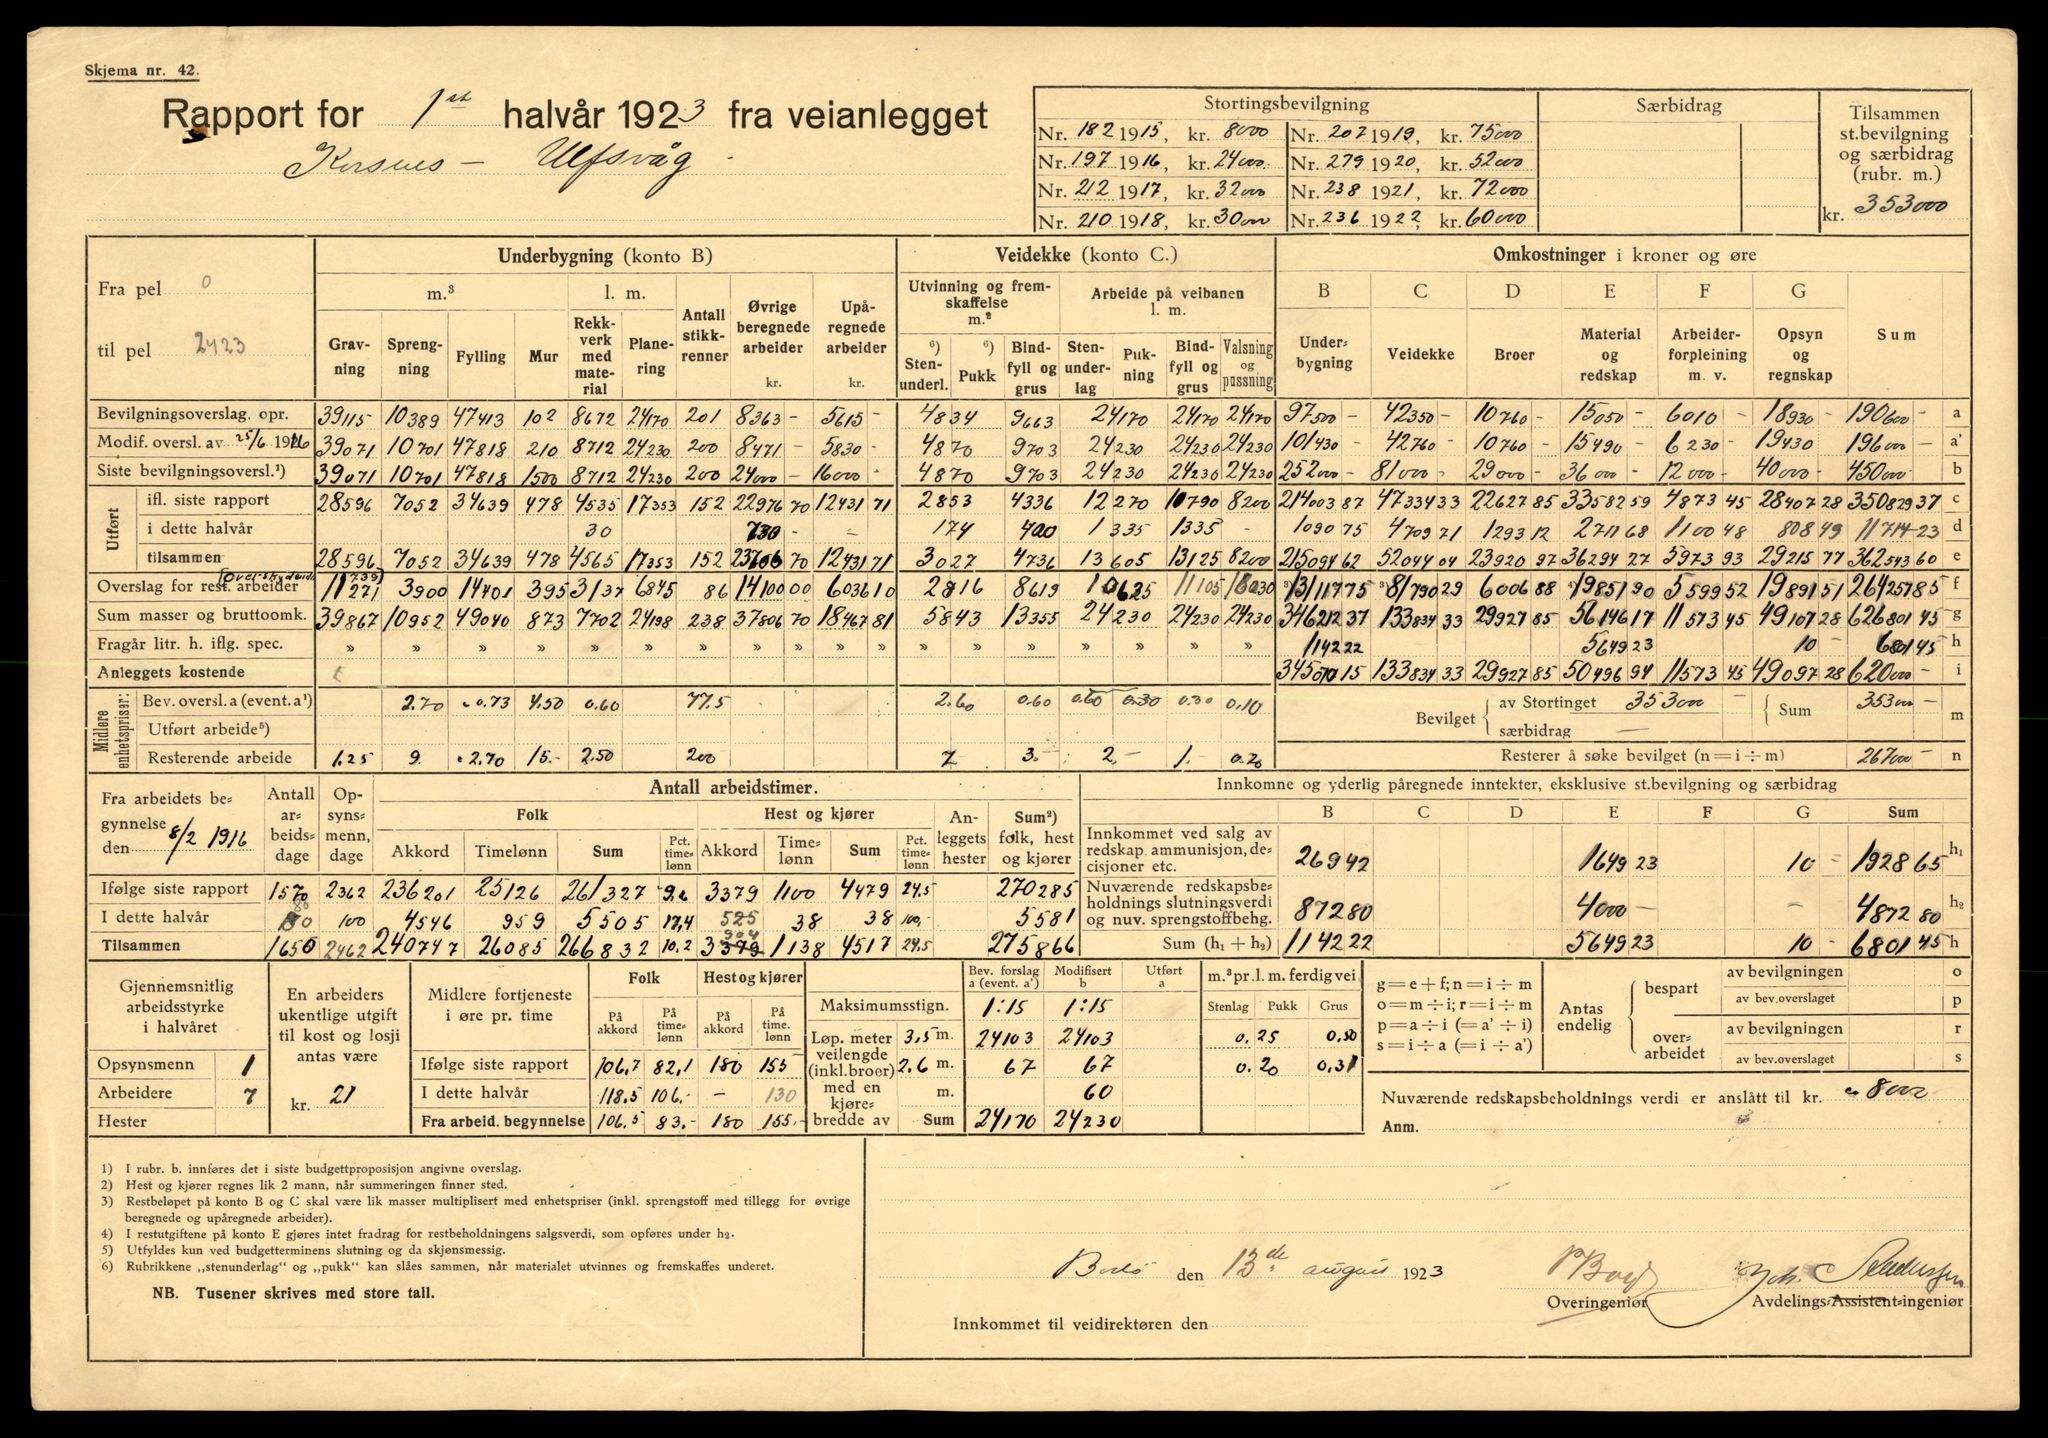 Skjema nr. 42.
Rapport for 1st halvår 1923 fra veianlegget
Korsnes — Ulfsvåg
Stortingsbevilgning Særbidrag Tilsammen st.bevilgning og særbidrag (rubr. m.)
Nr. 182 1915, kr. 8000 Nr. 207 1919, kr. 75000
Nr. 197 1916, kr. 24000 Nr. 279 1920, kr. 52000
Nr. 212 1917, kr. 32000 Nr. 238 1921, kr. 72000
Nr. 210 1918, kr. 30000 Nr. 236 1922, kr. 60000
kr. 353000
Fra pel 0
til pel 2423
Underbygning (konto B) Veidekke (konto C.) Omkostninger i kroner og øre
m.³ l. m. Antall stikkrenner Øvrige beregnede arbeider kr. Upåregnede arbeider kr.
Utvinning og fremskaffelse m.² Arbeide på veibanen l. m.
B C D E F G
Gravning Sprengning Fylling Mur Rekkverk med material Planering
6) Stenunderl. 6) Pukk Bindfyll og grus Stenunderlag Pukning Bindfyll og grus Valsning og pussning
Underbygning Veidekke Broer Material og redskap Arbeiderforpleining m. v. Opsyn og regnskap Sum
Bevilgningsoverslag. opr. 39115 10389 47413 102 8672 24170 201 8363 - 5615 - 4834 9663 24170 24170 24170 97500 - 42350 - 10760 - 15050 - 6010 - 18930 - 190600 - a
Modif. oversl. av 25/6 1916 39071 10701 47818 210 8712 24230 200 8471 - 5830 - 4870 9703 24230 24230 24230 101430 - 42760 - 10760 - 15490 - 6230 - 19430 - 196000 - a'
Siste bevilgningsoversl.¹) 39071 10701 47818 1500 8712 24230 200 24000 - 16000 - 4870 9703 24230 24230 24230 252000 - 81000 - 29000 - 36000 - 12000 - 40000 - 450000 b
Utført
ifl. siste rapport 28596 7052 34639 478 4535 17353 152 22976 70 12431 71 2853 4336 12270 10790 8200 214003 87 47334 33 22627 85 33582 59 4873 45 28407 28 350829 37 c
i dette halvår 30 730 - 174 400 1335 1335 - 1090 75 4709 71 1293 12 2711 68 1100 48 808 49 11714 23 d
tilsammen 28596 7052 34639 478 4565 17353 152 23706 70 12431 71 3027 4736 13605 13125 8200 215094 62 52044 04 23920 97 36294 27 5973 93 29215 77 362543 60 e
Overslag for rest. arbeider 11271 3900 14401 395 3137 6845 86 14100 00 6036 10 2816 8619 10625 11105 16030 ³) 131117 75 ³) 81790 29 6006 88 ⁴) 19851 90 5599 52 19891 51 264257 85 f
Sum masser og bruttoomk. 39867 10952 49040 873 7702 24198 238 37806 70 18467 81 5843 13355 24230 24230 24230 346212 37 133834 33 29927 85 56146 17 11573 45 49107 28 626801 45 g
Fragår litr. h. iflg. spec. » » » » » » » » » » » » » » » » » 1142 22 5649 23 10 - 6801 45 h
Anleggets kostende 345070 15 133834 33 29927 85 50496 94 11573 45 49097 28 620000 - i
Midlere enhetspriser:
Bev. oversl. a (event. a¹) 2.70 0.73 4.50 0.60 77.5 2.60 0.60 0.60 0.30 0.30 0.10
Utført arbeide⁵)
Resterende arbeide 1.25 9. 2.70 15.- 2.50 200 7 3.- 2.- 1.- 0.20
Bevilget av Stortinget 353000 særbidrag — Sum 353000 - m
Resterer å søke bevilget (n = i ÷ m) 267000 - n
Fra arbeidets begynnelse den 8/2 1916
Antall arbeidsdage Opsynsmenn, dage Antall arbeidstimer.
Folk Hest og kjører Anleggets hester Sum²) folk, hest og kjører
Akkord Timelønn Sum Pct. timelønn Akkord Timelønn Sum Pct. timelønn
Ifølge siste rapport 1570 2362 236201 25126 261327 9,6 3379 1100 4479 24,5 270285
I dette halvår 80 100 4546 959 5505 17,4 525 38 38 100,- 5581
Tilsammen 1650 2462 240747 26085 266832 10,2 3379 1138 4517 24,5 275866
Innkomne og yderlig påregnede inntekter, eksklusive st.bevilgning og særbidrag
B C D E F G Sum
Innkommet ved salg av redskap, ammunisjon, decisjoner etc. 269 42 1649 23 10 - 1928 65 h₁
Nuværende redskapsbeholdnings slutningsverdi og nuv. sprengstoffbehg. 872 80 4000 - - 4872 80 h₂
Sum (h₁ + h₂) 1142 22 5649 23 10 - 6801 45 h
Gjennemsnitlig arbeidsstyrke i halvåret
Opsynsmenn 1
Arbeidere 7
Hester
En arbeiders ukentlige utgift til kost og losji antas være
kr. 21
Midlere fortjeneste i øre pr. time
Folk Hest og kjører
På akkord På timelønn På akkord På time. lønn
Ifølge siste rapport 106,7 82,1 180 155
I dette halvår 118.5 106.- - 130
Fra arbeid. begynnelse 106,5 83.- 180 155.-
Bev. forslag a (event. a') Modifisert b Utført a
Maksimumsstign. 1:15 1:15
Løp. meter veilengde (inkl. broer) med en kjørebredde av
3,5 m. 24103 24103
2,6 m. 67 67
m. 60
Sum 24170 24230
m.³ pr. l. m. ferdig vei
Stenlag Pukk Grus
0.25 0,50
0.20 0,31
g = e + f; n = i ÷ m
o = m ÷ i; r = i ÷ m
p = a ÷ i (= a' ÷ i)
s = i ÷ a (= i ÷ a')
Antas endelig
bespart av bevilgningen o
av bev. overslaget p
overarbeidet av bevilgningen r
av bev. overslaget s
Nuværende redskapsbeholdnings verdi er anslått til kr. 8000
Anm.
1) I rubr. b. innføres det i siste budgettproposisjon angivne overslag.
2) Hest og kjører regnes lik 2 mann, når summeringen finner sted.
3) Restbeløpet på konto B og C skal være lik masser multiplisert med enhetspriser (inkl. sprengstoff med tillegg for øvrige
beregnede og upåregnede arbeider).
4) I restutgiftene på konto E gjøres intet fradrag for restbeholdningens salgsverdi, som opføres under h₂.
5) Utfyldes kun ved budgetterminens slutning og da skjønsmessig.
6) Rubrikkene „stenunderlag" og „pukk" kan slåes sammen, når materialet utvinnes og fremskaffes underet.
NB. Tusener skrives med store tall.
Bodø den 13de august 1923
Overingeniør
Avdelings-Assistent-ingeniør
Innkommet til veidirektøren den